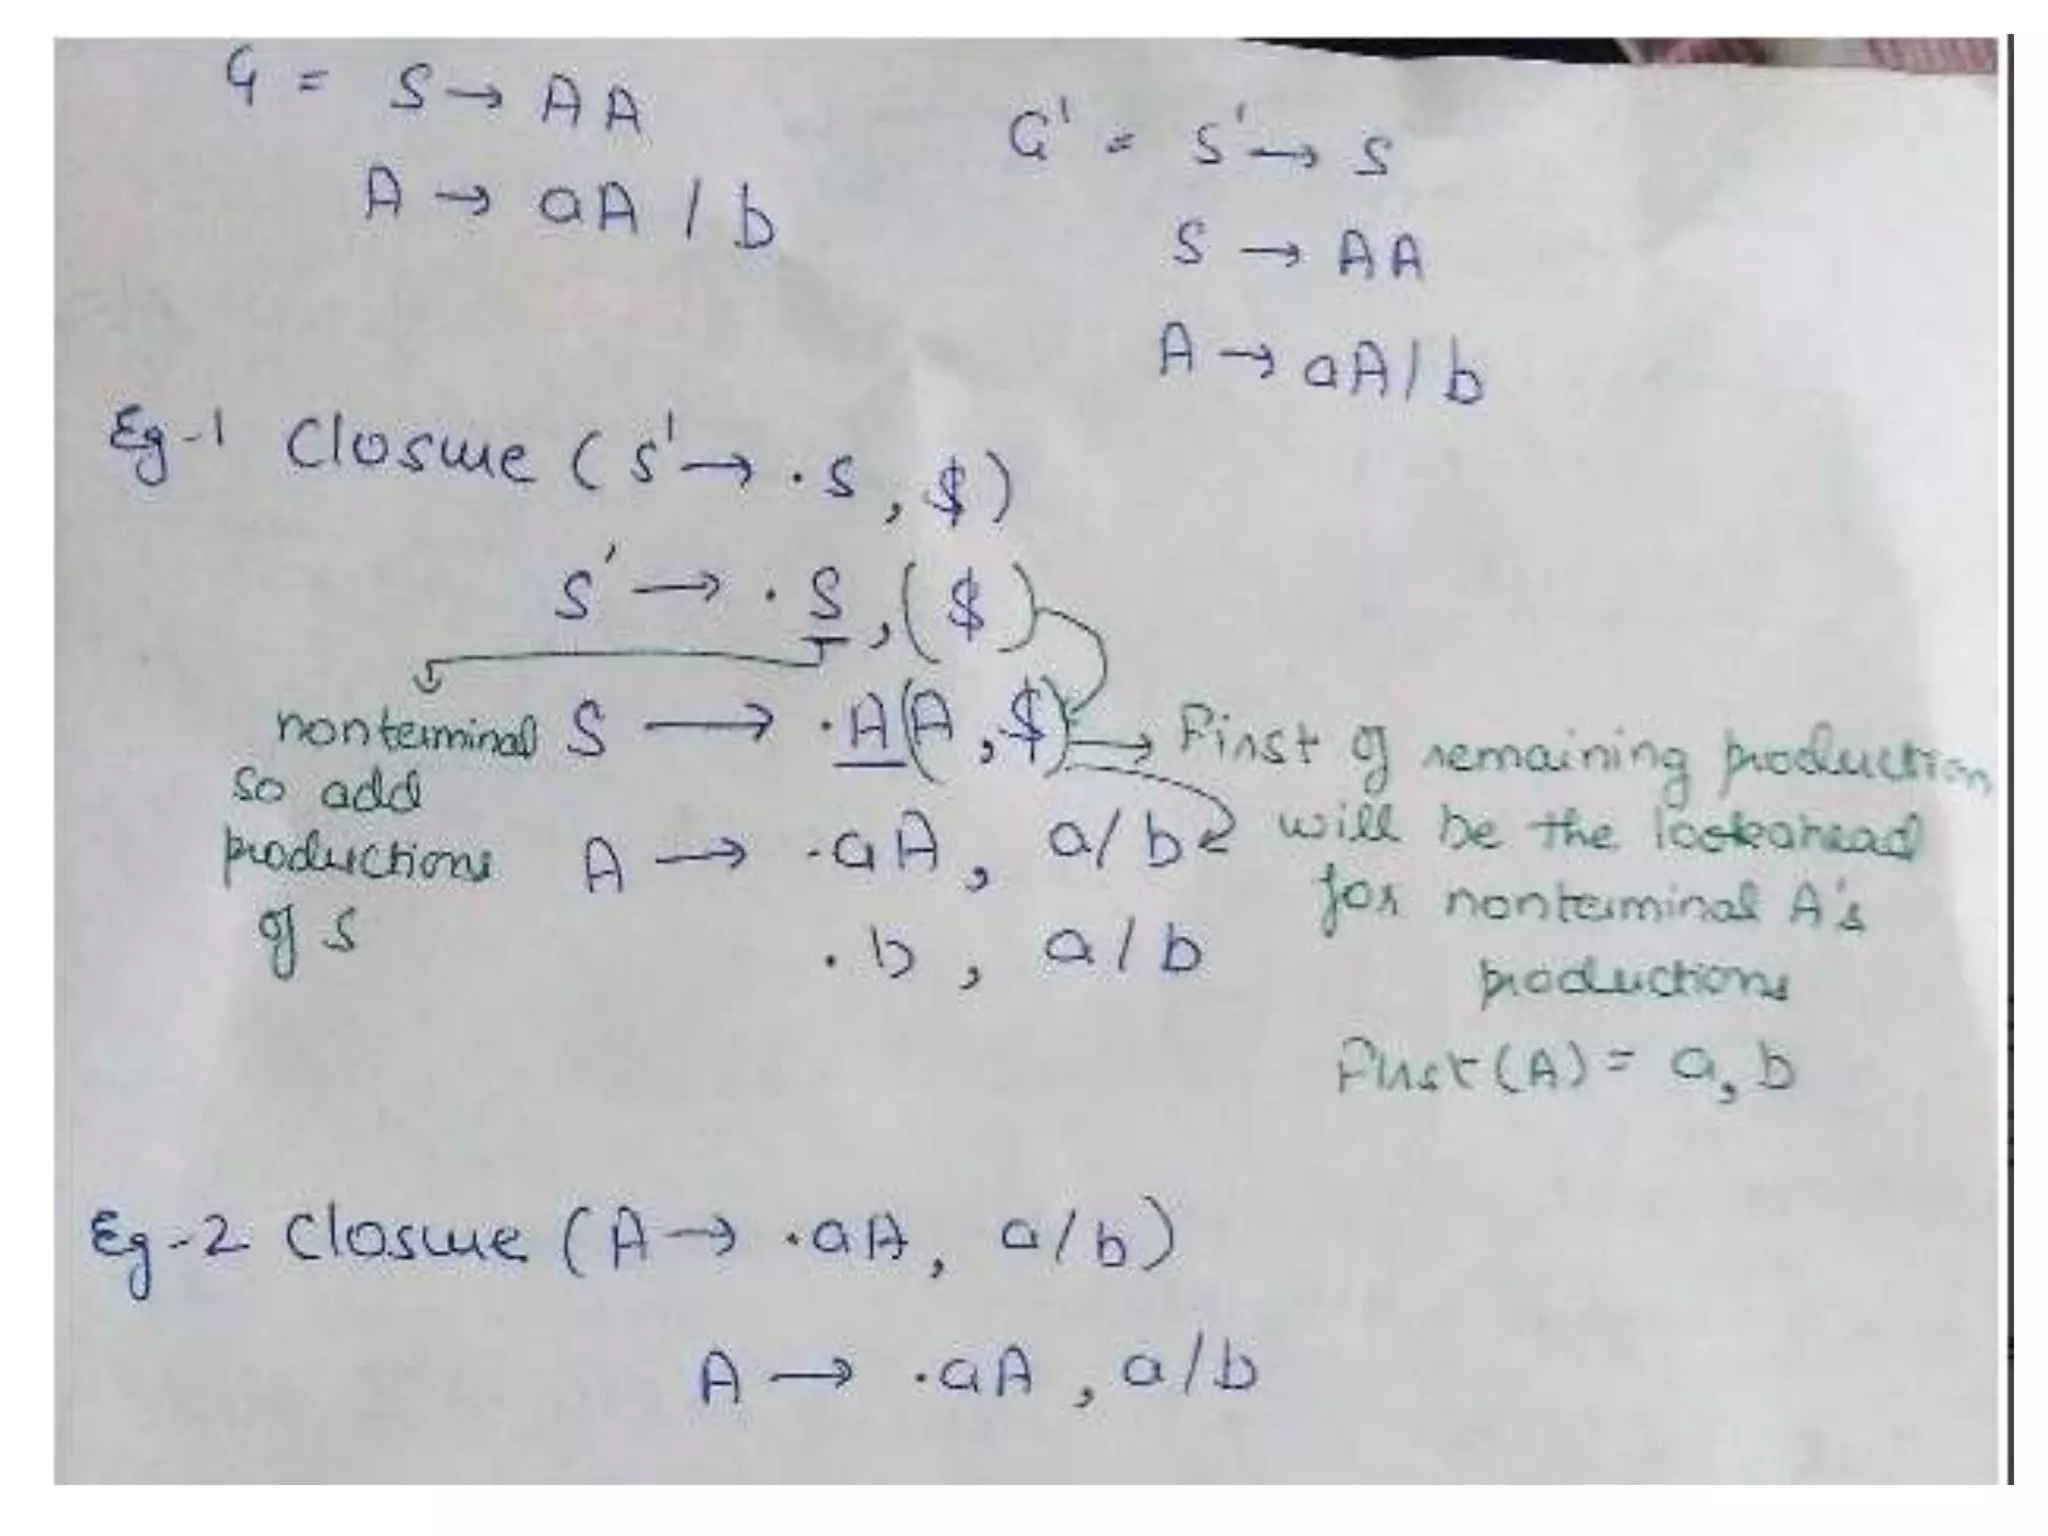 G = S → AA
A → aA / b
G' = S' → S
S → AA
A → aA / b
Eg-1 Closure (S' → .S, $)
S' → .S, ($)
S → .A(A, $)
nonterminal
so add
productions
of S
A → .aA, a/b
.b, a/b
First of remaining production
will be the lookahead
for nonterminal A's
productions
First(A) = a, b
Eg-2 Closure (A → .aA, a/b)
A → .aA, a/b